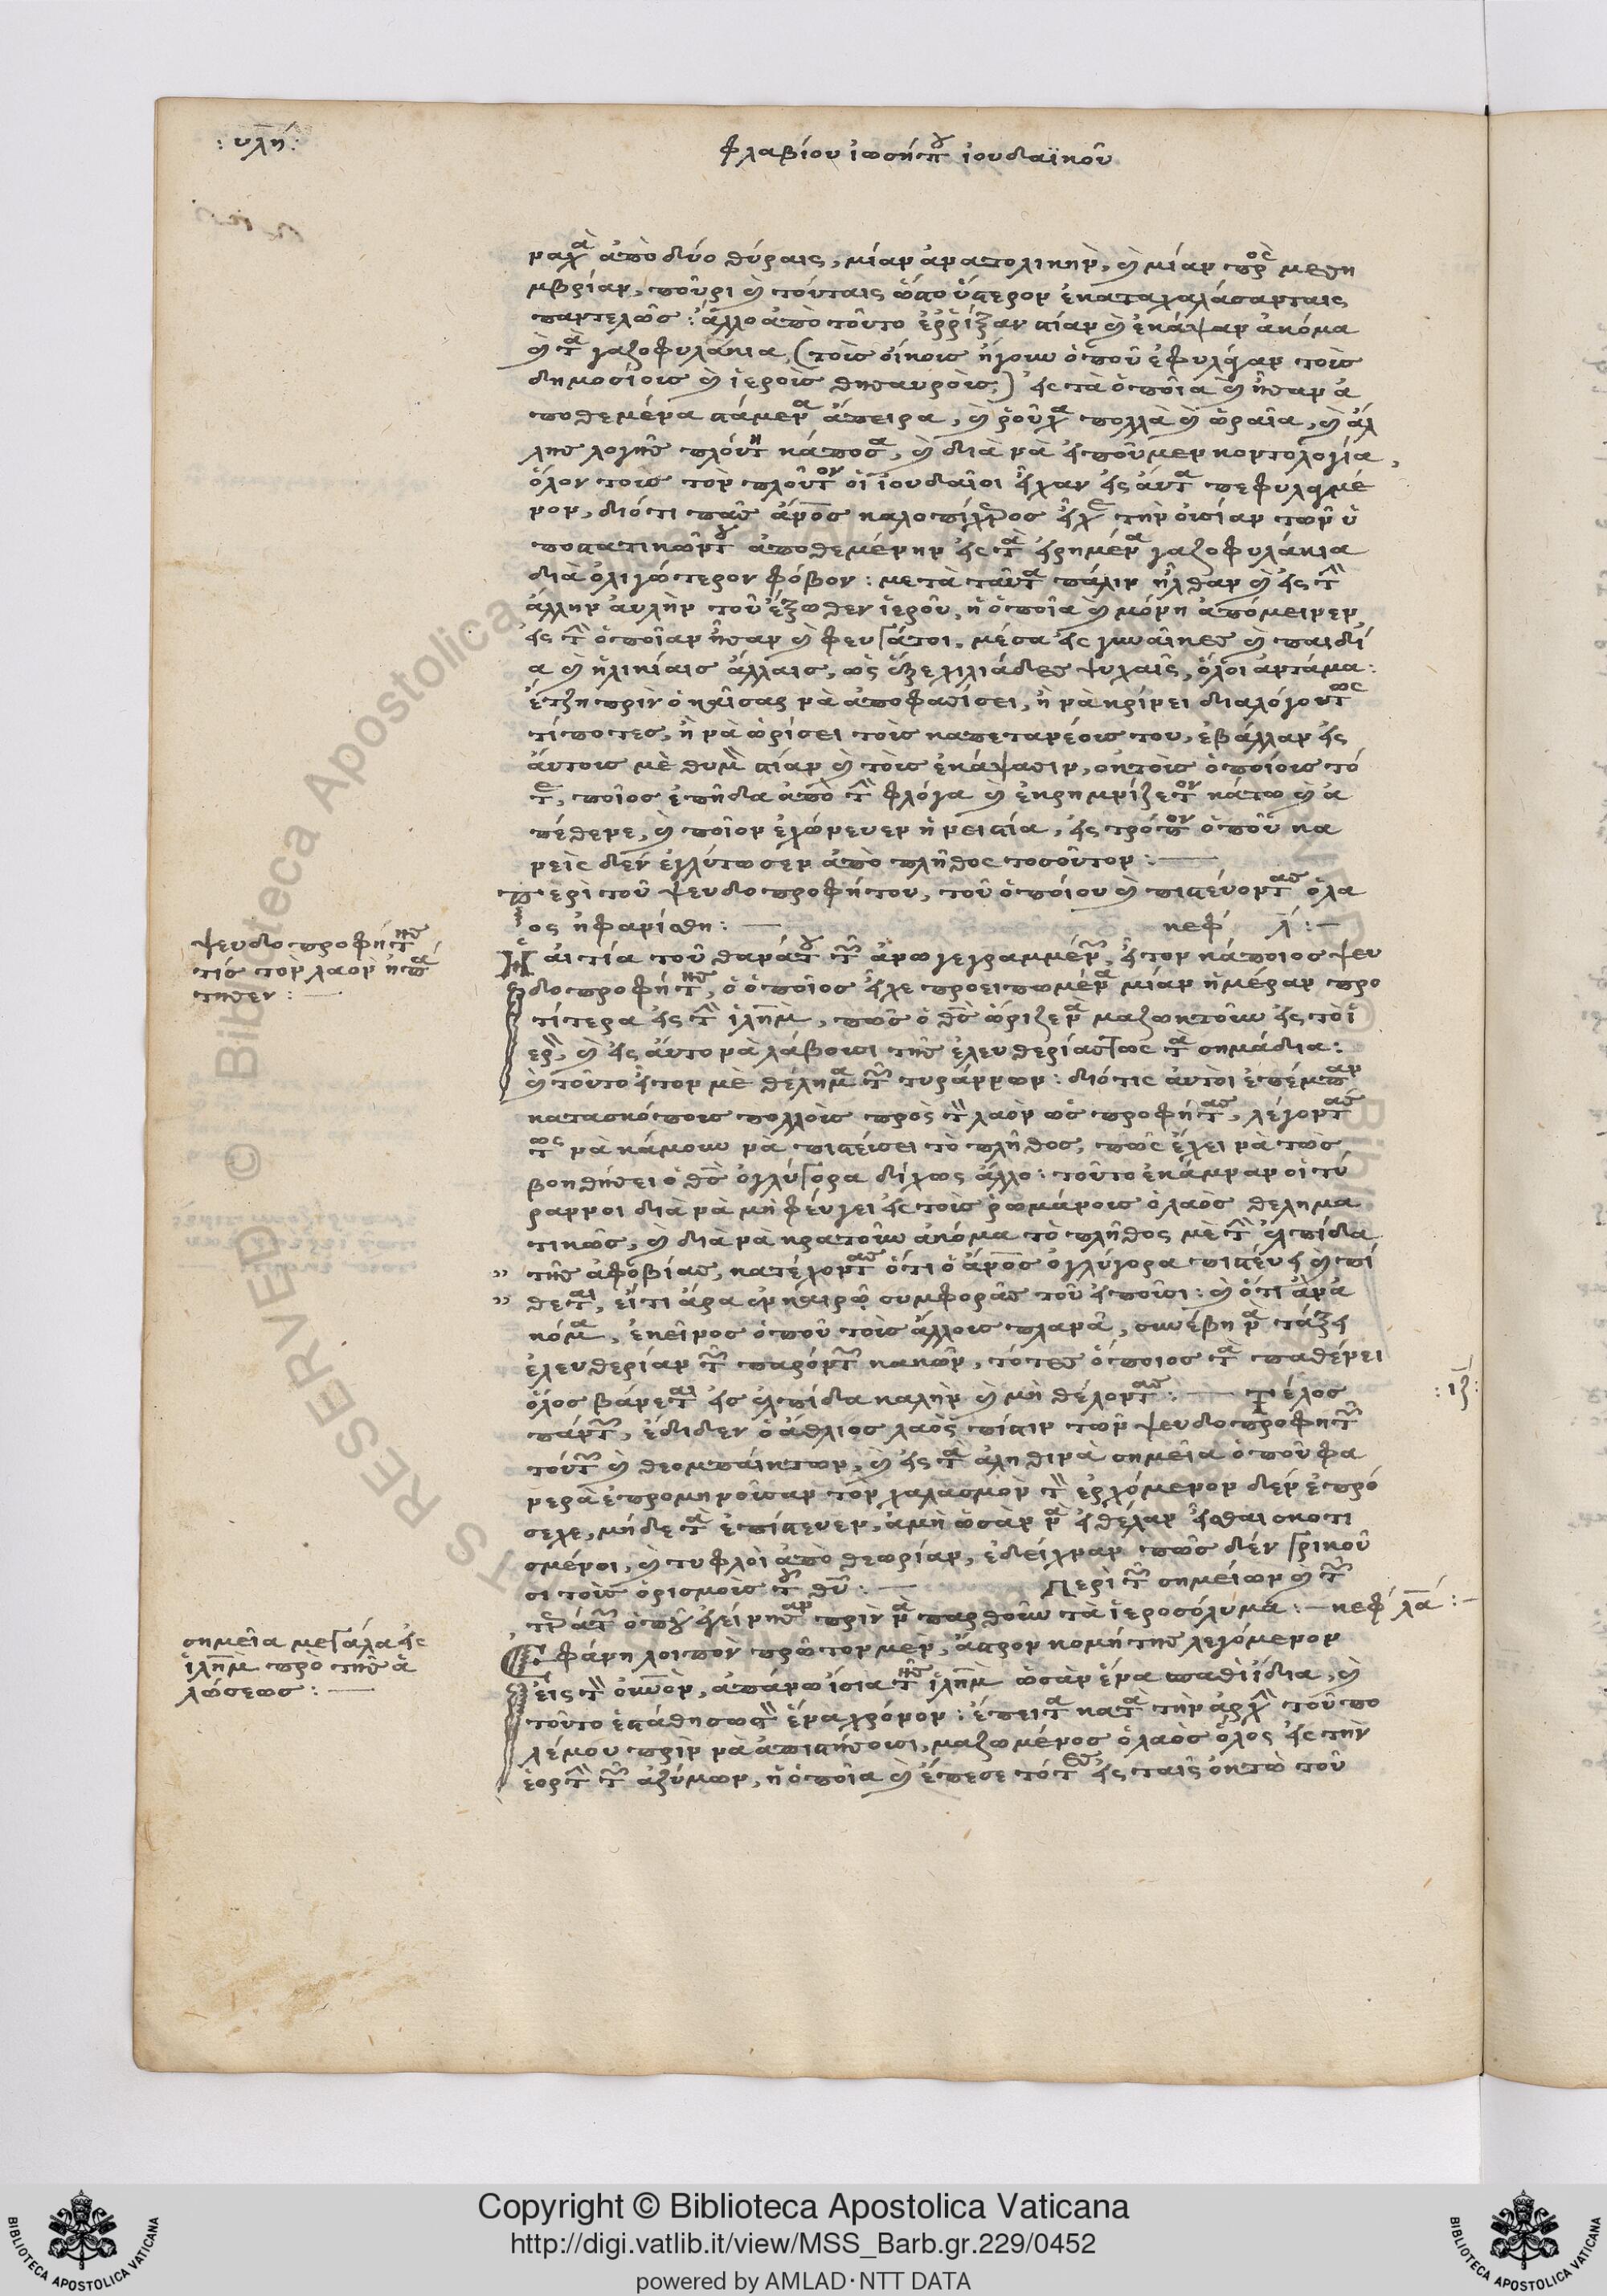 : υλή :
φλαβίου ἰωσήπου ἰουδαϊκοῦ
ναχὰ ἀπὸ δύο θύραις, μίαν ἀνατολικὴν, καὶ μίαν πρὸς μεση
μβρίαν, πούρι καὶ τούταις ὥστο ὕστερον ἐκαταχαλάσανταις
παντελῶς : ἄλλο ἀπὸ τοῦτο ἐρρίξαν στίαν καὶ ἐκάψαν ἀκόμα
καὶ τὰ γαζοφυλάκια, (τοὶς οἴκοις ἤγουν ὁποῦ ἐφυλάγαν τοὶς
δημοσίοις καὶ ἱεροῖς θησαυροῖς,) εἰς τὰ ὁποῖα καὶ ἦσαν ἀ
ποθεμένα στάμενα ἄπειρα, καὶ ῥοῦχα πολλὰ καὶ ὡραῖα, καὶ ἀλ
λης λογῆς πλούτη κάποσα, καὶ διὰ νὰ εἰποῦμεν κοντολογία,
ὅλον τοις τὸν πλοῦτον οἱ ἰουδαῖοι εἶχαν εἰς αὐτὰ πεφυλαγμέ
νον, διότι πᾶς ἄνος καλοπίχερος εἶχε τὴν οὐσίαν τῶν ὑ
ποστατικῶν του ἀποθεμένην εἰς τὰ εἰρημένα γαζοφυλάκια
διὰ ὀλιγώτερον φόβον : μετὰ ταῦτα πάλιν ἦλθαν καὶ εἰς τὴν
ἄλλην αὐλὴν τοῦ ἔξωθεν ἱεροῦ, ἡ ὁποία καὶ μόνη ἀπόμεινεν,
εἰς τὴν ὁποῖαν ἦσαν καὶ φευγάτοι, μέσα εἰς γυναῖκες καὶ παιδί
α καὶ ἡλικίαις ἄλλαις, ὡς ἕξε χιλιάδες ψυχαῖς, ὅλοι ἀντάμα :
ἔτζη πρὶν ὁ καῖσαρ νὰ ἀποφασίσει, ἢ νὰ κρίνει διαλόγου τως
τίποτες, ἢ νὰ ὁρίσει τοὶς καπετανέοις του, ἐβάλλαν εἰς
αὐτοις μὲ θυμὸν στίαν καὶ τοὶς ἐκάψασιν, ἐκ τοὶς ὁποίοις τό
τε, ποῖος ἐπήδα ἀπὸ τὴν φλόγα καὶ ἐκρημνίζετον κάτω καὶ ἀ
πέθενε, καὶ ποῖον ἐχώνευεν ἡ νειστία, εἰς τρόπον ὁποῦ κα
νεὶς δὲν ἐγλύτωσεν ἀπὸ πλῆθος τοσοῦτον : —
περὶ τοῦ ψευδοπροφήτου, τοῦ ὁποίου καὶ πιστεύοντας ὁ λα
ὸς ἠφανίσθη : — κεφ λ : —
Ἡ αἰτία τοῦ θανάτου τῶν ἄνω γεγραμμένων, εἶτον κάποιος ψευ
δοπροφήτης, ὁ ὁποῖος εἶχε προειπωμένα μίαν ἡμέραν προ
τίτερα εἰς τὴν ἱλημ, πῶς ὁ θς ὡρίζε νὰ μαζωκτοῦν εἰς τὸ ἱ
ερὸν, καὶ εἰς αὐτο νὰ λάβουσι τῆς ἐλευθερίας τως τὰ σημάδια :
καὶ τοῦτο εἶτον μὲ θέλημα τῶν τυράννων : διότις αὐτοὶ ἐπέμπαν
κατασκόποις πολλοὶς πρὸς τὸν λαὸν ὡς προφήτας, λέγοντας
τως νὰ κάμουν νὰ πιστεύσει τὸ πλῆθος, πῶς ἔχει νὰ τὼς
βοηθήσει ὁ θς ὀγλύγορα δίχως ἄλλο : τοῦτο ἐκάμναν οἱ τύ
ραννοι διὰ νὰ μὴ φεύγει εἰς τοὶς ῥωμάνοις ὁ λαὸς θελημα
τικῶς, καὶ διὰ νὰ κρατοῦν ἀκόμα τὸ πλῆθος μὲ τὴν ἐλπίδα
τῆς ἀφοβίας, κατέχοντας ὅτι ὁ ἄνος ὀγλύγορα πιστεύει καὶ πί
θεται, εἴτι ἄρα ἐν καιρῷ συμφορᾶς τοῦ εἰποῦσι : καὶ ὅτι ἂν ἀ
κόμα, ἐκεῖνος ὁποῦ τοὶς ἄλλοις πλανᾶ, συνέβη νὰ τάξει
ἐλευθερίαν τῶν παρόντων κακῶν, τότες ὅποιος τὰ παθένει
ὅλος βάνεται εἰς ἐλπίδα καλὴν καὶ μὴ θέλοντας : — Τέλος
: ιζ :
πάντων, ἐδίδεν ὁ ἄθλιος λαὸς πίστιν τῶν ψευδοπροφητῶν
τούτων καὶ θεομπαίκτων, καὶ εἰς τὰ ἀληθινὰ σημεῖα ὁποῦ φα
νερὰ ἐπρομηνοῦσαν τὸν χαλασμὸν τὸν ἐρχόμενον δὲν ἐπρό
σεχε, μήδε τὰ ἐπίστευεν, ἀμὴ ὡσὰν νὰ εἰθέλαν εἶσθαι σκοτι
σμένοι, καὶ τυφλοὶ ἀπὸ θεωρίαν, ἐδείχναν πῶς δὲν γρικοῦ
σι τοὺς ὁρισμοὶς τοῦ θυ : — Περὶ τῶν σημείων καὶ τῶν
τεράτων ὁποῦ ἐγείνησαν πρὶν νὰ παρθοῦν τὰ ἱεροσόλυμα : — κεφ λα : —
Ἐφάνη λοιπὸν πρῶτον μὲν, ἄστρον κομήτης λεγόμενον
εἰς τὸν οὐνὸν, ἀπάνω ἴσια τῆς ἱλημ ὡσὰν ἕνα σπαθὶ ἴδια, καὶ
τοῦτο ἐστάθη σωστὸν ἕνα χρόνον : ἔπειτα κατὰ τὴν ἀρχὴν τοῦ πο
λέμου πρὶν νὰ ἀπιστήσουσι, μαζωμένος ὁ λαὸς ὅλος εἰς τὴν
ἑορτὴν τῶν ἀζύμων, ἡ ὁποία καὶ ἔπεσε τότες εἰς ταῖς ὀκτὼ τοῦ
ψευδοπροφήτης
τίς τὸν λαὸν ἠπά
τησεν : —
σημεῖα μεγάλα εἰς
ἱλημ πρὸ τῆς ἁ
λώσεως : —
Copyright © Biblioteca Apostolica Vaticana
http://digi.vatlib.it/view/MSS_Barb.gr.229/0452
powered by AMLAD·NTT DATA
BIBLIOTECA APOSTOLICA VATICANA
BIBLIOTECA APOSTOLICA VATICANA